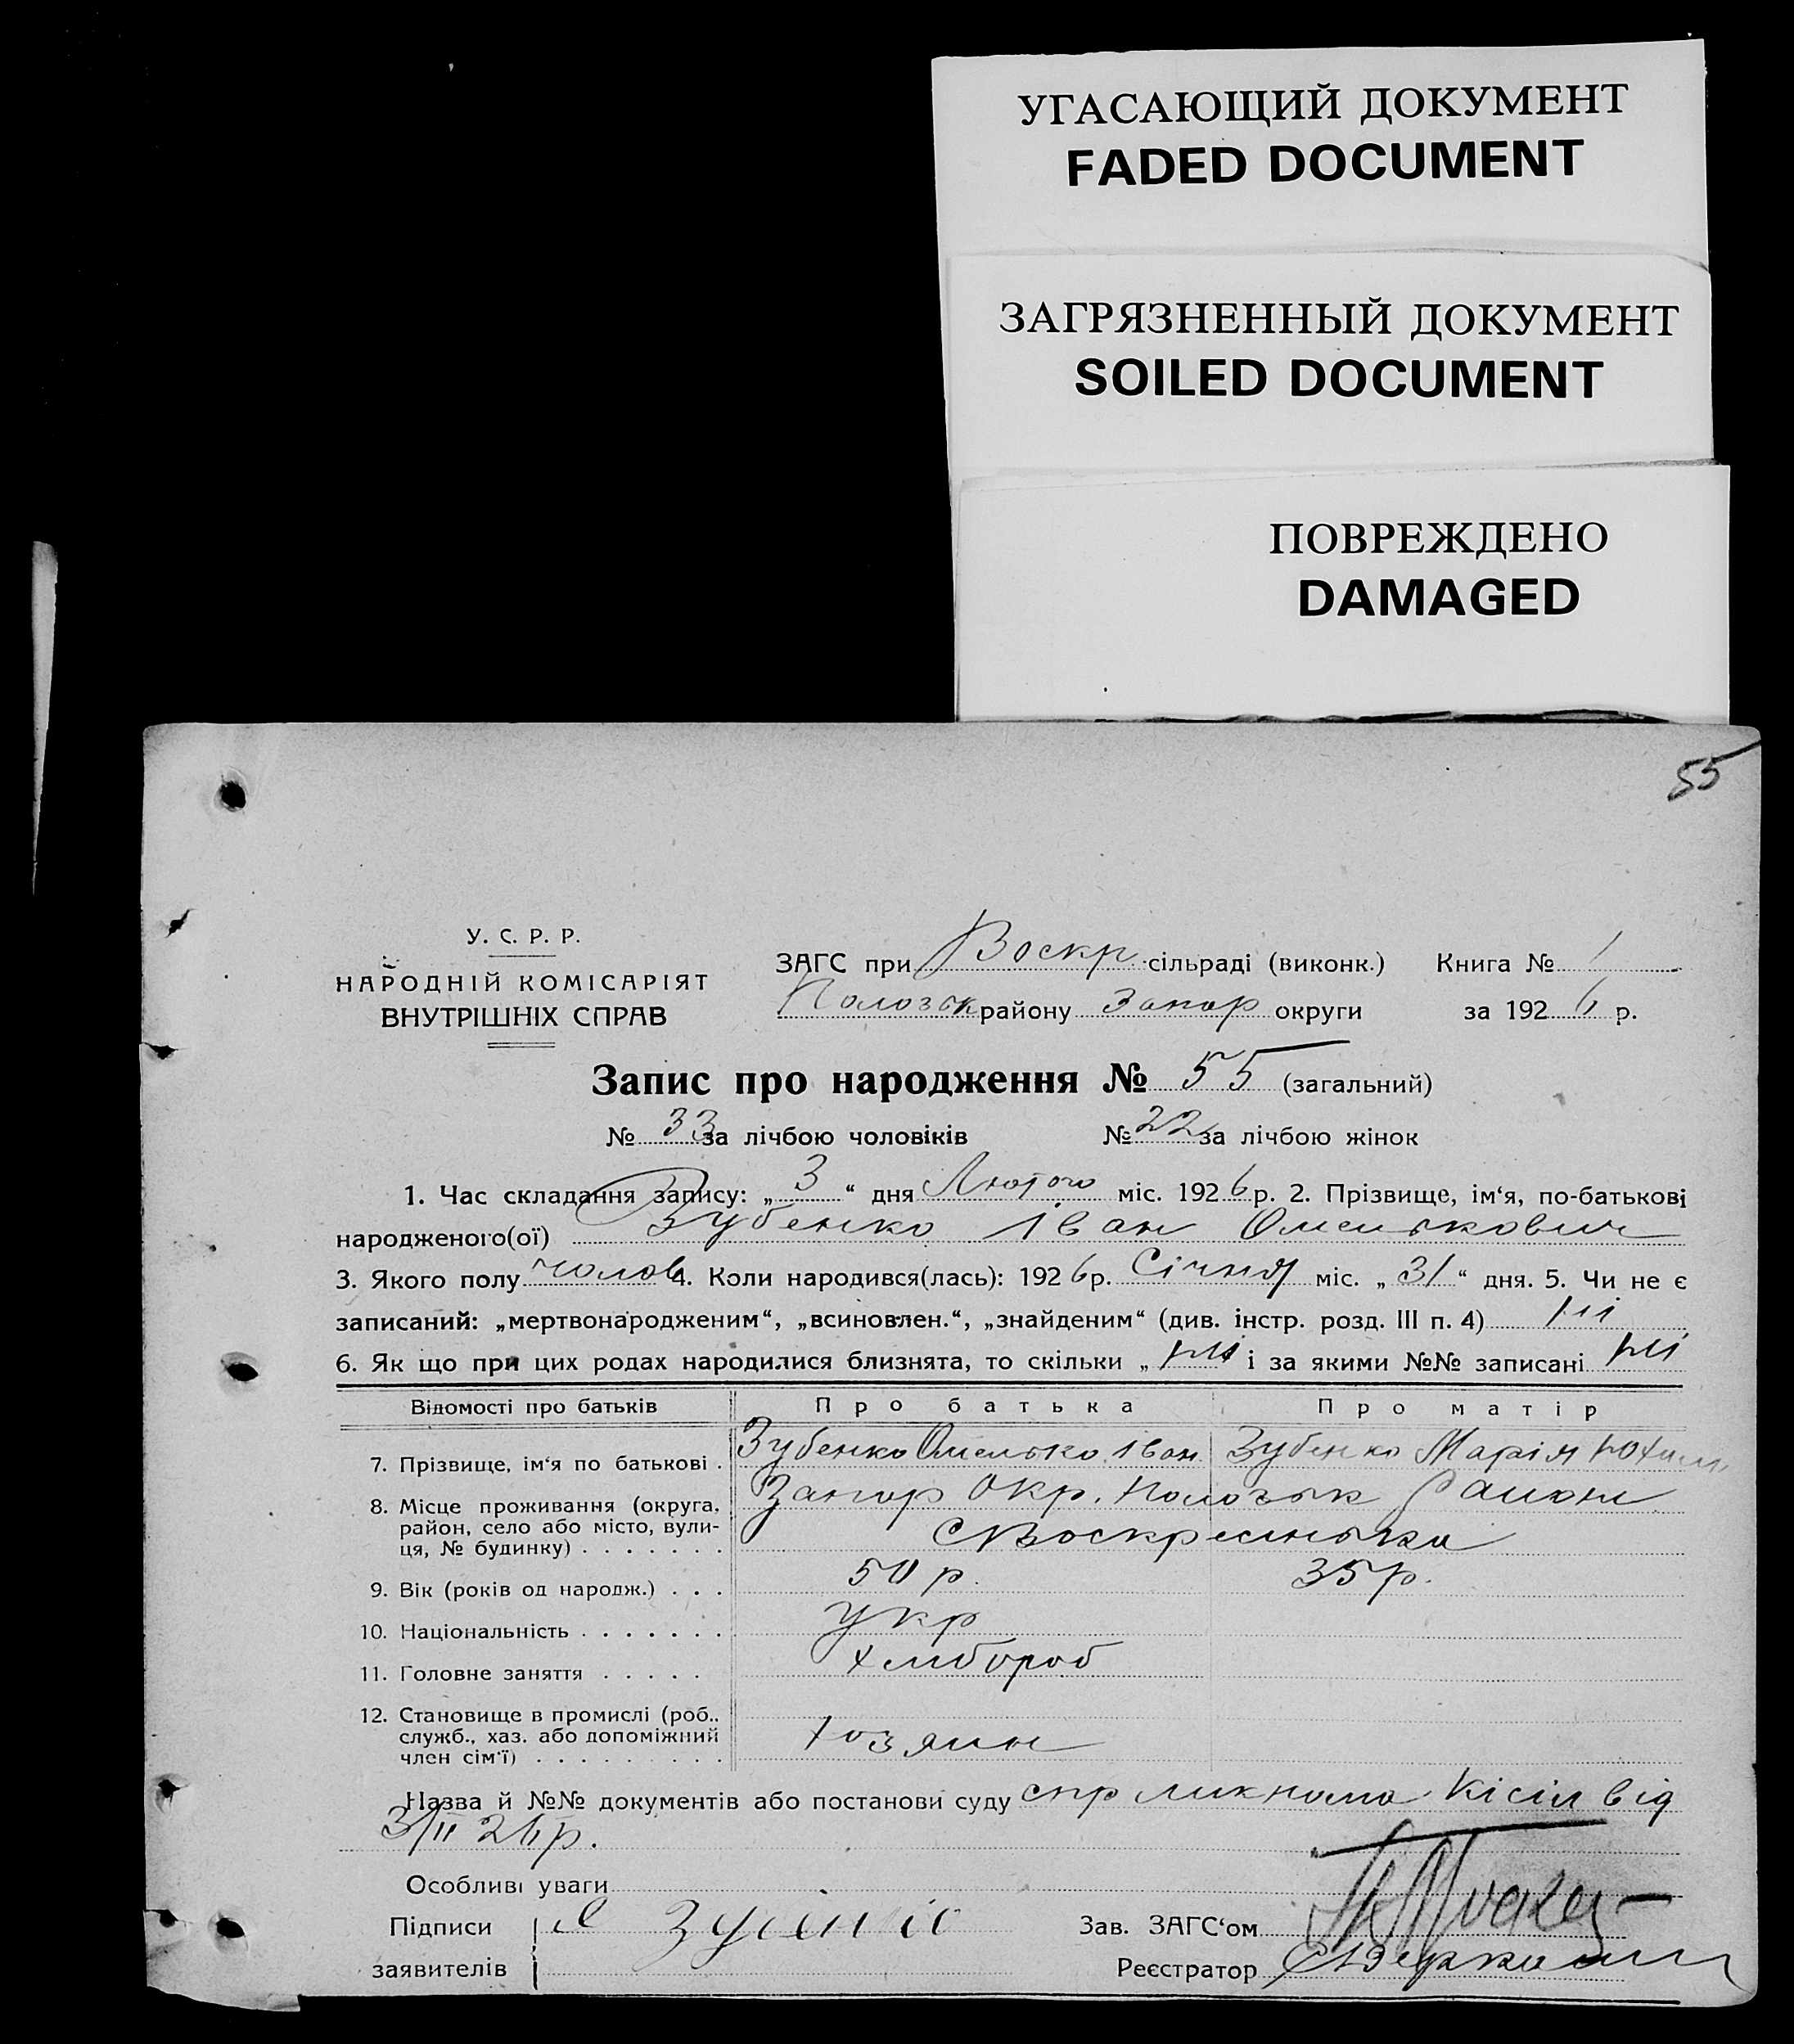 УГАСАЮЩИЙ ДОКУМЕНТ
FADED DOCUMENT
ЗАГРЯЗНЕННЫЙ ДОКУМЕНТ
SOILED DOCUMENT
ПОВРЕЖДЕНО
DAMAGED
55
У. С. Р. Р.
НАРОДНІЙ КОМІСАРІЯТ
ВНУТРІШНІХ СПРАВ
ЗАГС при Воскр. сільраді (виконк.) Книга № 1
Пологськ району Запор округи за 1926 р.
Запис про народження № 55 (загальний)
№ 33 за лічбою чоловіків № 22 за лічбою жінок
1. Час складання запису: „3“ дня Лютого міс. 1926 р. 2. Прізвище, ім‘я, по-батькові
народженого(ої) Зубенко Іван Омелькович
3. Якого полу чолов 4. Коли народився(лась): 1926 р. Січня міс. „31“ дня. 5. Чи не є
записаний: „мертвонародженим“, „всиновлен.“, „знайденим“ (див. інстр. розд. III п. 4) ні
6. Як що при цих родах народилися близнята, то скільки „ ні і за якими №№ записані ні
Відомості про батьків Про батька Про матір
7. Прізвище, ім‘я по батькові . Зубенко Омелько Іван Зубенко Марія Юхим
8. Місце проживання (округа, Запор Окр. Пологськ Район
район, село або місто, вули-
ця, № будинку) . . . . . . . с Воскресенька
9. Вік (років од народж.) . . . 50 р. 35 р.
10. Національність . . . . . . . укр
11. Головне заняття . . . . . хлибороб
12. Становище в промислі (роб.,
служб., хаз. або допоміжний
член сім‘ї) . . . . . . . . . хозяин
Назва й №№ документів або постанови суду спр ликпома Кісіл від
3/II 26 р.
Особливі уваги
Підписи Зав. ЗАГС‘ом
заявителів Реєстратор